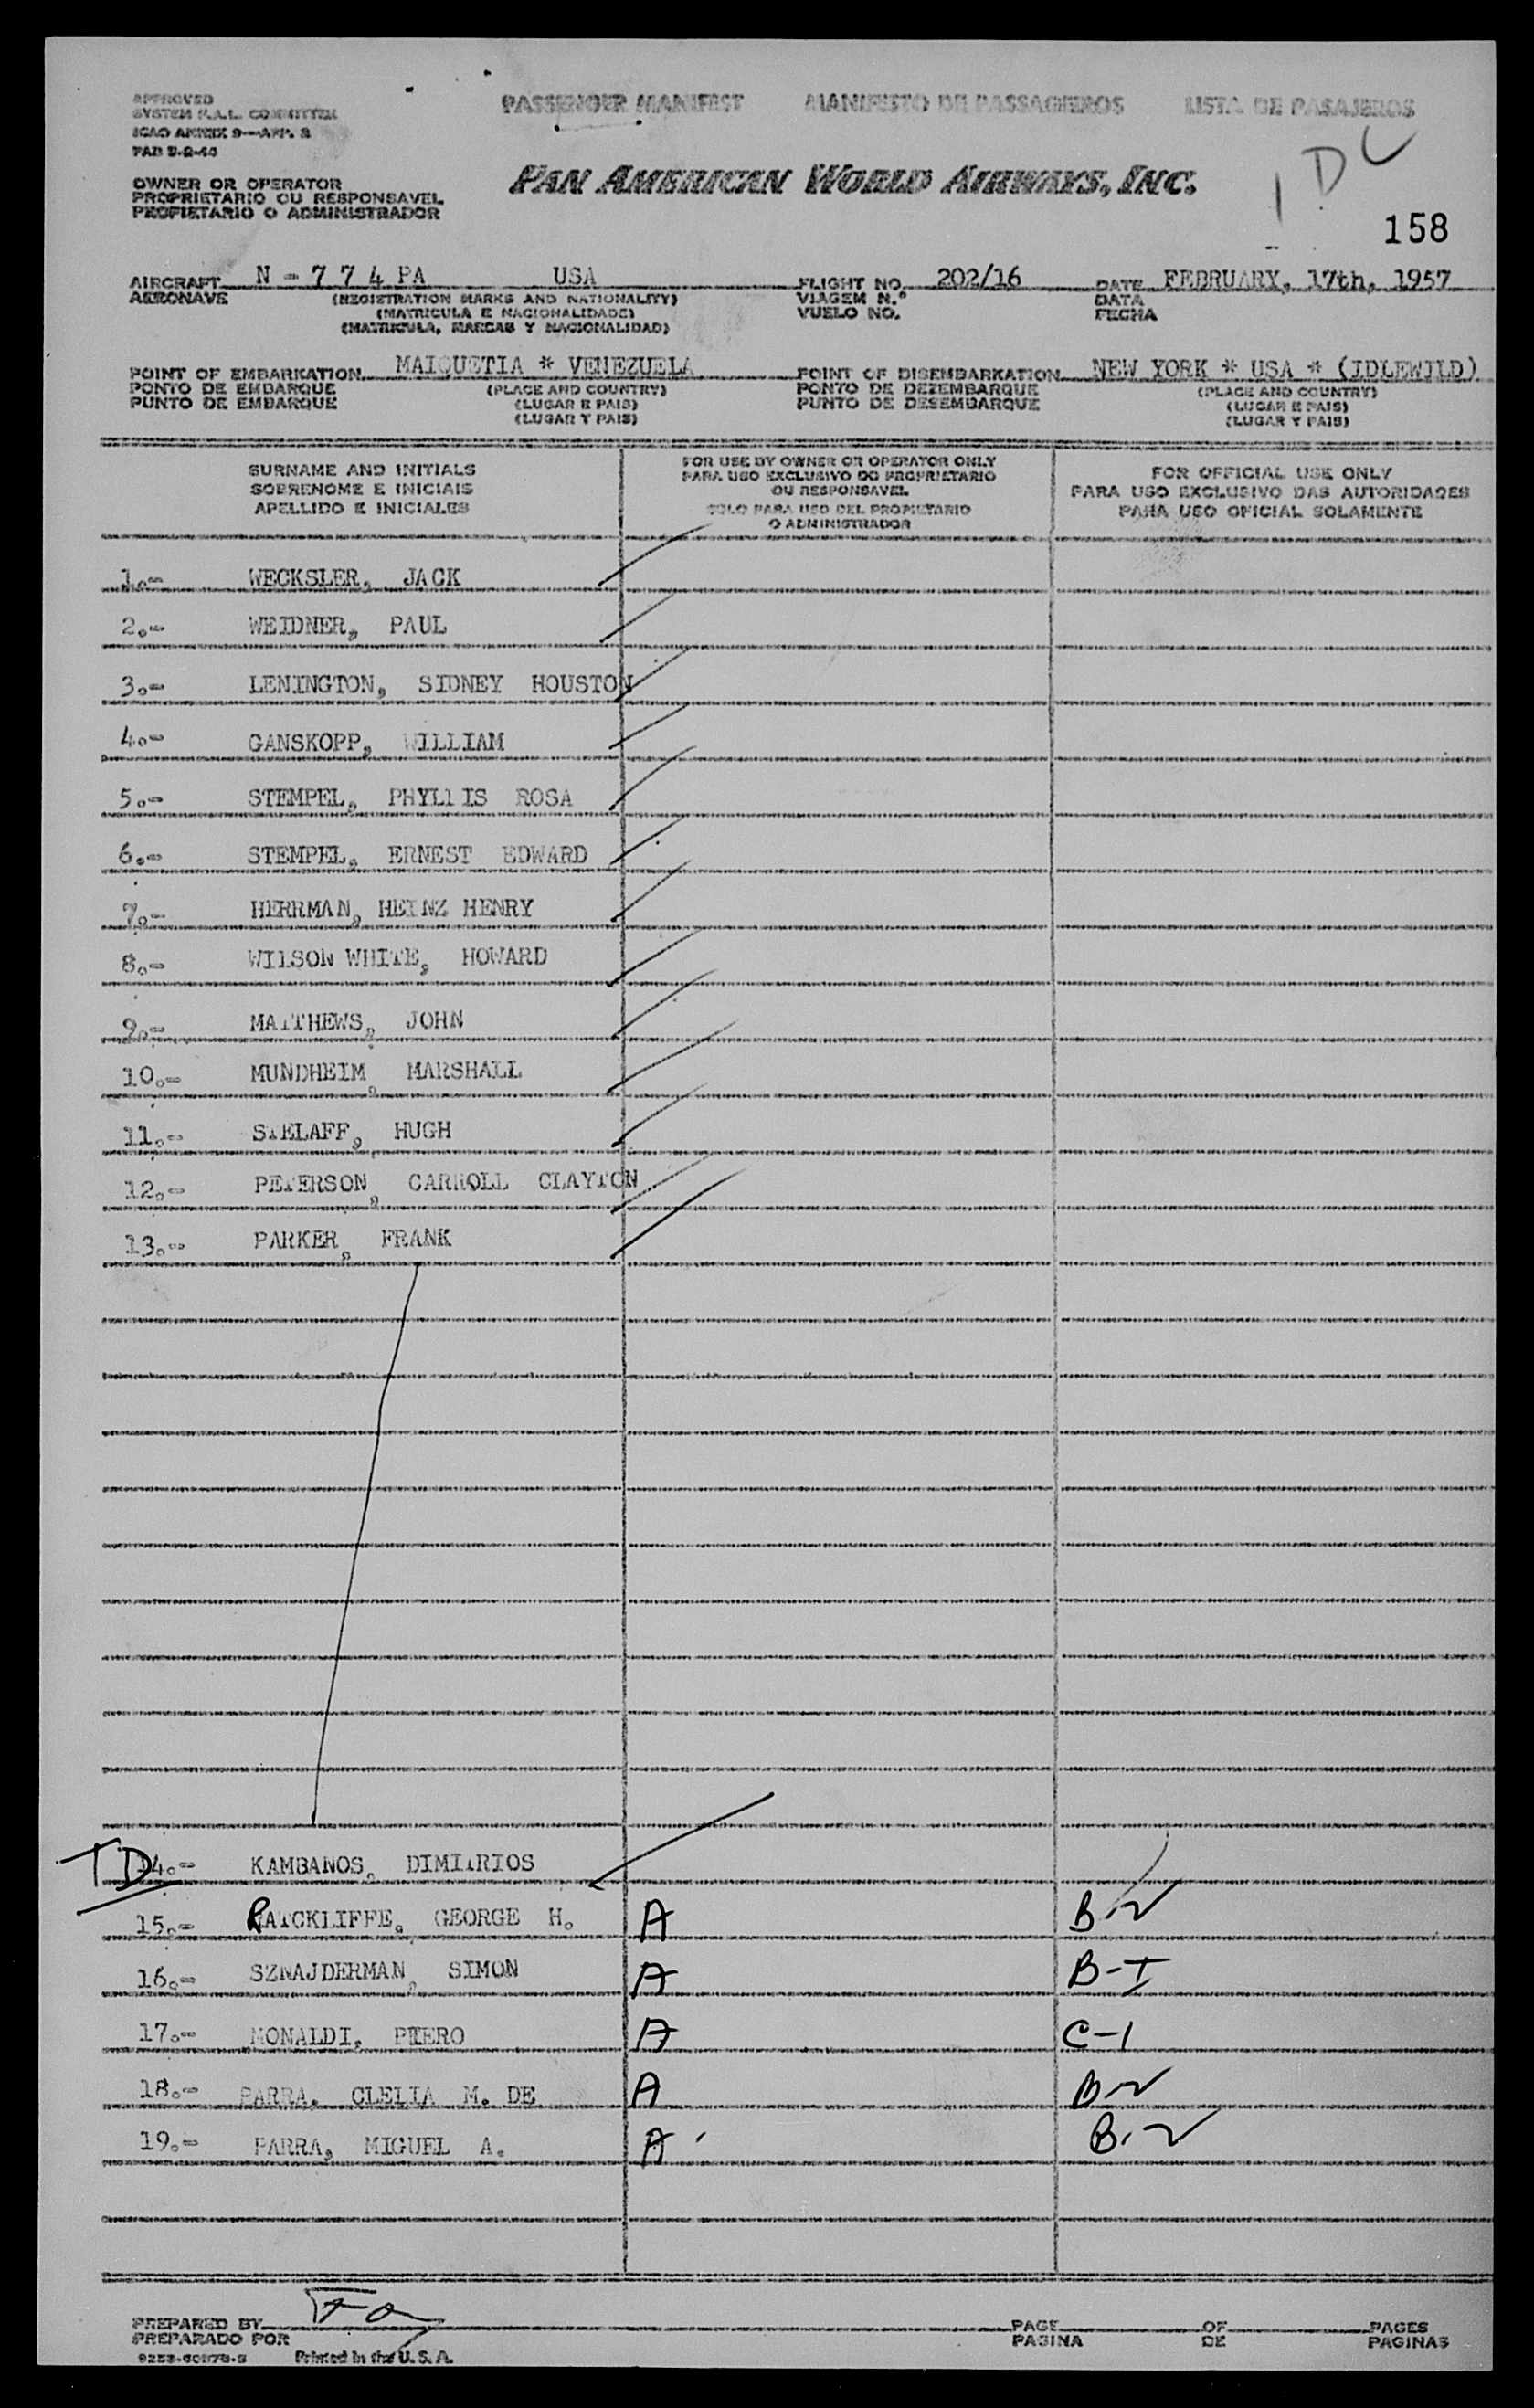 APPROVED
SYSTEM F.A.L. COMMITTEE
ICAO ANNEX 9—APP. 3
PASSENGER MANIFEST MANIFESTO DE PASSAGEIROS LISTA DE PASAJEROS
OWNER OR OPERATOR
PROPRIETARIO OU RESPONSAVEL
PROPIETARIO O ADMINISTRADOR
PAN AMERICAN WORLD AIRWAYS, INC.
158
AIRCRAFT N - 7 7 4 PA USA FLIGHT NO. 202/16 DATE FEBRUARY, 17th, 1957
AERONAVE (REGISTRATION MARKS AND NATIONALITY) VIAGEM N.º DATA
(MATRICULA E NACIONALIDADE) VUELO NO. FECHA
(MATRICULA, MARCAS Y NACIONALIDAD)
POINT OF EMBARKATION MAIQUETIA * VENEZUELA POINT OF DISEMBARKATION NEW YORK * USA * (IDLEWILD)
PONTO DE EMBARQUE (PLACE AND COUNTRY) PONTO DE DEZEMBARQUE (PLACE AND COUNTRY)
PUNTO DE EMBARQUE (LUGAR E PAIS) PUNTO DE DESEMBARQUE (LUGAR E PAIS)
(LUGAR Y PAIS) (LUGAR Y PAIS)
SURNAME AND INITIALS
SOBRENOME E INICIAIS
APELLIDO E INICIALES
FOR USE BY OWNER OR OPERATOR ONLY
PARA USO EXCLUSIVO DO PROPRIETARIO
OU RESPONSAVEL
SOLO PARA USO DEL PROPIETARIO
O ADMINISTRADOR
FOR OFFICIAL USE ONLY
PARA USO EXCLUSIVO DAS AUTORIDADES
PARA USO OFICIAL SOLAMENTE
1.- WECKSLER, JACK
2.- WEIDNER, PAUL
3.- LENINGTON, SIDNEY HOUSTON
4.- GANSKOPP, WILLIAM
5.- STEMPEL, PHYLLIS ROSA
6.- STEMPEL, ERNEST EDWARD
7.- HERRMAN, HEINZ HENRY
8.- WILSON WHITE, HOWARD
9.- MATTHEWS, JOHN
10.- MUNDHEIM, MARSHALL
11.- STELAFF, HUGH
12.- PETERSON, CARROLL CLAYTON
13.- PARKER, FRANK
TD 14.- KAMBANOS, DIMITRIOS
15.- RATCKLIFFE, GEORGE H. A B-2
16.- SZNAJDERMAN, SIMON A B-I
17.- MONALDI, PIERO A C-1
18.- PARRA, CLELIA M. DE A B-2
19.- PARRA, MIGUEL A. A B-2
PREPARED BY PAGE OF PAGES
PREPARADO POR PAGINA DE PAGINAS
Printed in the U.S.A.